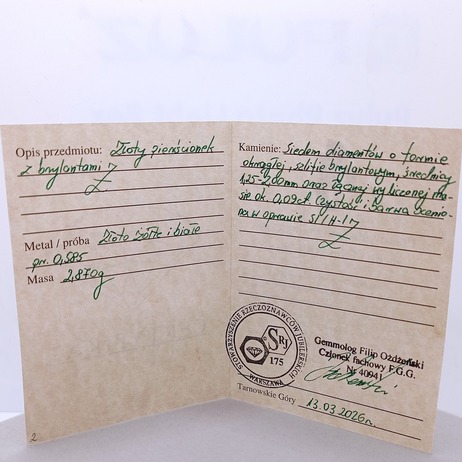 Opis przedmiotu: Złoty pierścionek
z brylantami
Metal / próba Złoto żółte i białe
pr. 0,585
Masa 2,870g
2
Kamienie: Siedem diamentów o formie
okrągłej, szlifie brylantowym, średnicy
1,25-2,00mm oraz łącznej wyliczonej ma-
sie ok. 0,09ct. Czystość i barwa ocenio-
na w oprawie SI/H-I
STOWARZYSZENIE RZECZOZNAWCÓW JUBILERSKICH
SRJ
175
WARSZAWA
Gemmolog Filip Ożdżeński
Członek fachowy F.G.G.
Nr 40941
Tarnowskie Góry 13.03.2026r.